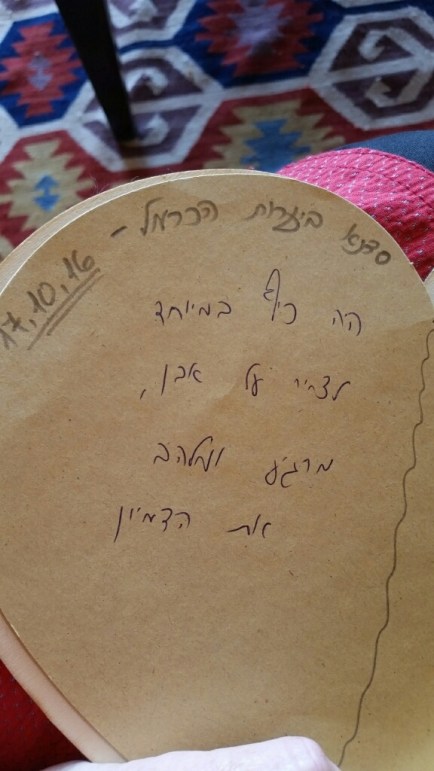 סדנא ביערות הכרמל -
17.10.16
היה כיף במיוחד
לצייר על אבן,
מרגיע ומלהיב
את הדמיון